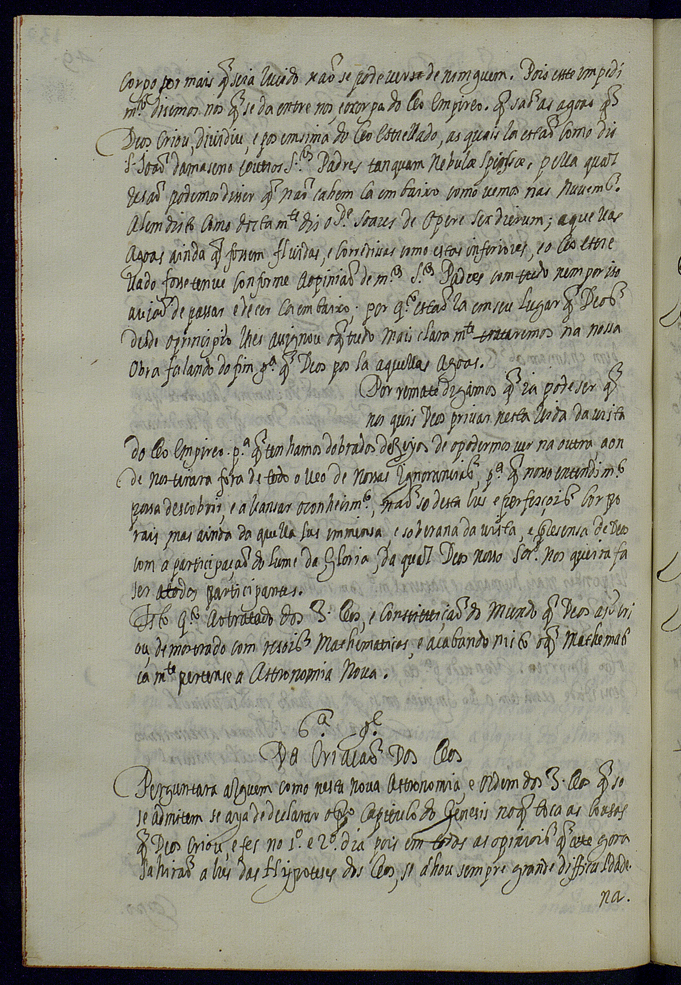 Corpo por mais q̃ seia lucido não se pode ver se de ninguem. Pois este impedi
m.to disemos nos q̃ se da entre nos, e o corpo do Ceo Empireo. q̃ sañ as agoas q̃
Deos Criou, dividiu, e pos em sima do Ceo Estrellado, as quais la estañ como dis
S. Joañ damaseno e outros S.tos Padres tanquam Nebulæ spissæ, pella qual
resañ podemos diser q̃ nañ cahem ca em baixo como vemos nas Nuvems.
Alem disto como docta m.te dis o P.e Soares de Opere sex dierum; aquellas
Agoas ainda q̃ fossem fluidas, e corredivas como estas inferiores, e o Ceo estre
llado fosse tenue conforme a opiniañ de m.tos S.tos Padres com tudo nem por isto
aviañ de passar e decer ca em baixo; por q.to estañ la em seu lugar q̃ Deos
desde o principio lhes asignou o q̃ tudo mais clara m.te trataremos na nossa
Obra falando do fim p.a q̃ Deos pos la aquellas Agoas.
Por remate digamos q̃ ia pode ser q̃
nos quis Deos privar nesta vida da vista
do Ceo Empireo p.a q̃ tenhamos dobrados desejos de o podermos ver na outra, aon
de nos tirara fora de todo o veo de Nossas Ignorancias, p.a q̃ nosso entendim.to
possa descobrir, e alcansar o conhecim.to, nañ so desta lus e perfeiçois corpo
rais mas ainda da quella lus immensa, e soberana da vista, e presensa de Deos
com a participaçañ do lume da Gloria, da qual Deos nosso Sor. nos queira fa
ser a todos participantes.
Isto q.to ao tratado dos 3. Ceos, e Constituiçañ do Mundo q̃ Deos assi cri
ou, demostrado com resois Mathematicas, e acabando nisto o q̃ Mathemati
ca m.te pertense a Astronomia Nova.
6.a p.e
Da Criaçañ dos Ceos
Perguntara alguem como nesta nova Astronomia e ordem dos 3. Ceos q̃ so
se admitem se aja de declarar o p.ro Capitulo do Genesis no q̃ toca as cousas
q̃ Deos Criou e fes no 1.o e 2.o dia pois em todas as opiniois q̃ ate gora
sahirañ a lus das Hypoteses dos Ceos, se achou sempre grande difficuldade
na.